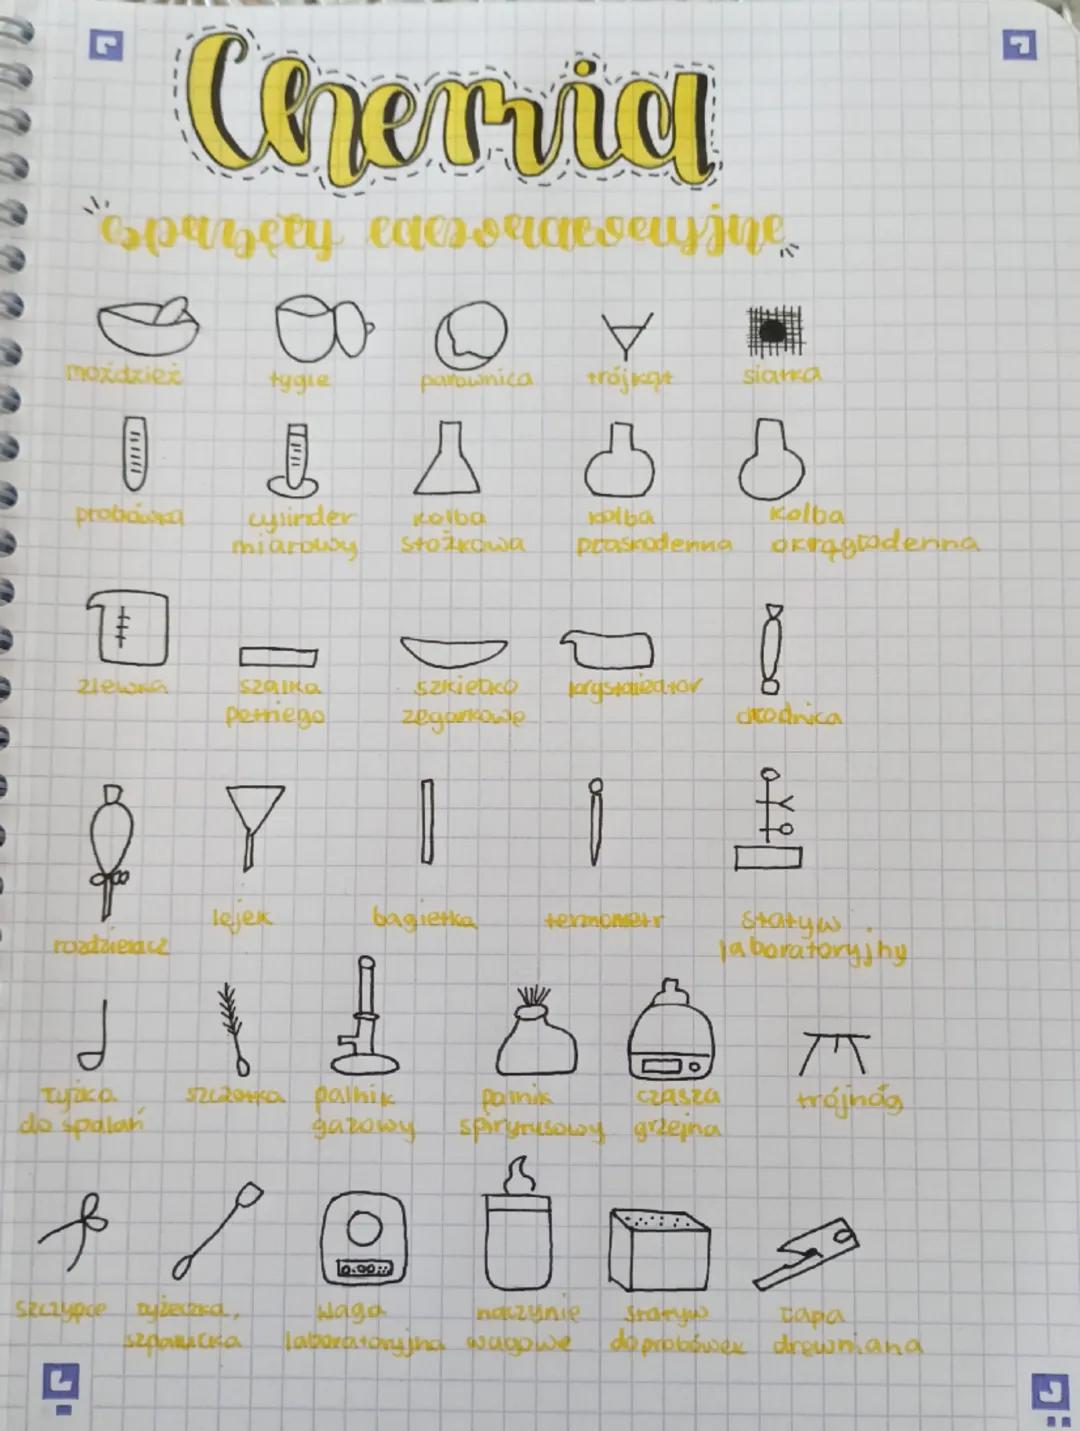 Chemia
sprzęty laboratoryjne
moździeż tygle parownica trójkąt siatka
probówka cylinder kolba kolba kolba
miarowy stożkowa płaskodenna okrągłodenna
zlewka szalka szkiełko krystalizator
petriego zegarkowe chłodnica
lejek bagietka termometr statyw
rozdzielacz laboratoryjny
łyżka szczotka palnik palnik czasza trójnóg
do spalań gazowy spirytusowy grzejna
szczypce łyżeczka, waga naczynie statyw łapa
szpatułka laboratoryjna wagowe do probówek drewniana